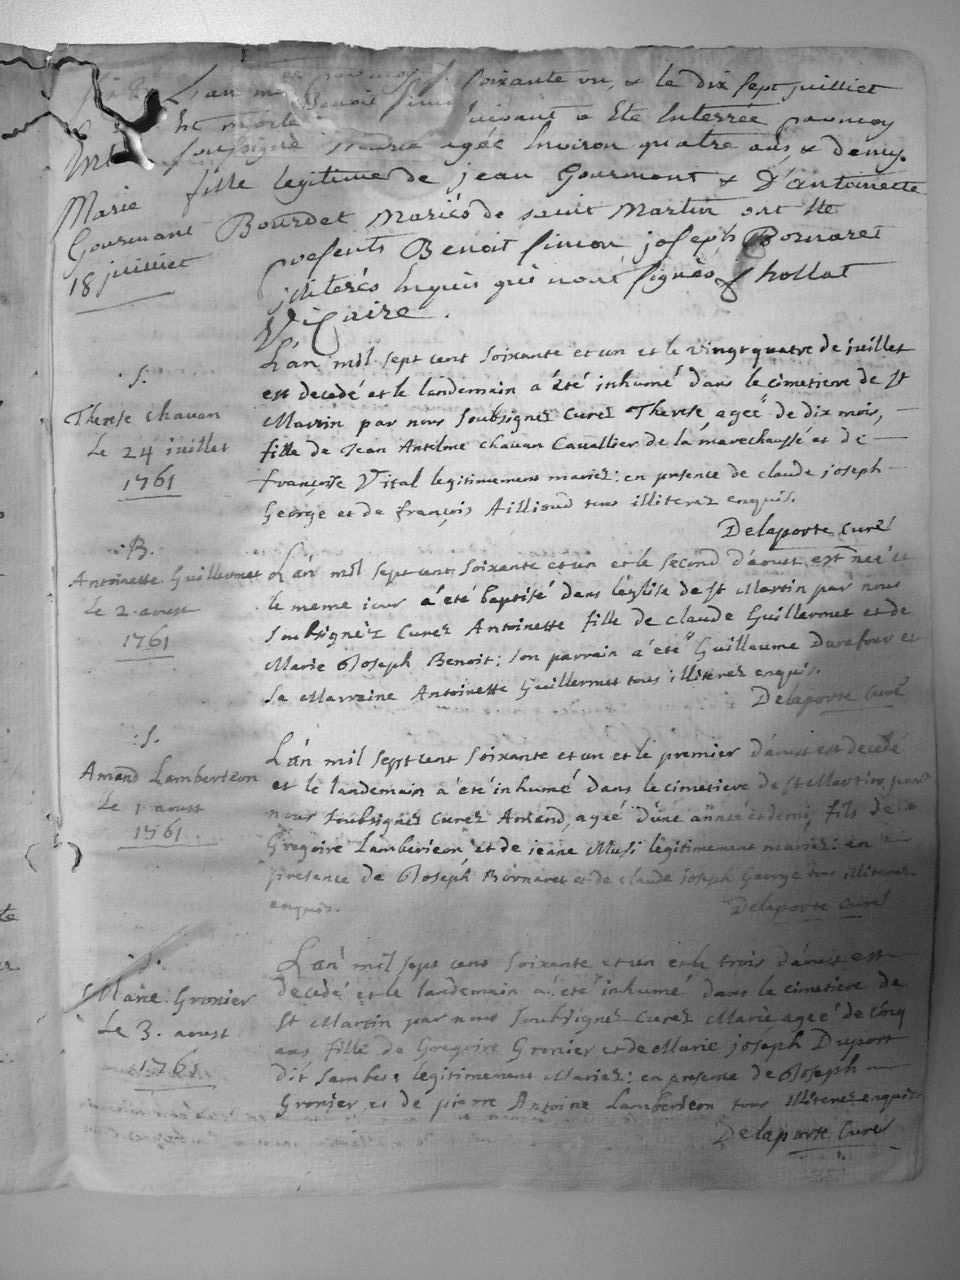 L'an soixante un, & le dix sept juilliet
Est morte suivant a Eté Enterrée par moy
soussigné agée Environ quatre ans & demy.
Marie fille legitime de jean Gourmont & D'antoinette
Gourmant Bourdet Mariés de saint Martin ont Ete
18 juilliet presents Benoit simon joseph Bornaret
Enquis qui n'ont signés
Vicaire.
L'an mil sept cent soixante et un et le vingt quatre de juillet
.S. est decedé et le landemain a été inhumé dans le cimetiere de St
Therese Chavan Martin par nous Soubsignez Curez Therese agee de dix mois,
Le 24 juillet fille de Jean Antelme Chavan Cavallier de la marechaussé et de
1761 françoise Vital legitimement mariez: en presence de claude joseph
George et de françois Aillioud tous illiterez enquis.
Delaporte Curé
.B.
Antoinette Guillermet L'an mil sept cent soixante et un et le second d'aoust est neé et
Le 2. aoust le meme jour a été baptisé dans l'église de St Martin par nous
1761 Soubsignéz Curez Antoinette fille de claude Guillermet et de
Marie Joseph Benoit; son parrain a été Guillaume et
Sa Marraine Antoinette Guillermet tous illiterez enquis.
Delaporte Curé
.S. L'an mil sept cent soixante et un et le premier d'aoust est decedé
Amand Lambericon et le landemain a été inhumé dans le cimetiere de St Martin par
Le 1 aoust nous Soubsignez Curez Amand, agé d'une année et demi, fils de
1761. Gregoire Lambericon et de jeane legitimement mariez: en
presence de Joseph Bornaret et de claude joseph George tous illiterez
enquis. Delaporte Curé
.S. L'an mil sept cent soixante et un et le trois d'aoust est
Marie Gronier decedé et le landemain a été inhumé dans le cimetiere de
Le 3. aoust St Martin par nous Soubsignez Curez Marie agee de cinq
1761 ans fille de Gregoire Gronier et de Marie joseph Duport
dit legitimement Mariez: en presence de Joseph
Gronier et de pierre Antoine Lambericon tous illiterez enquis
Delaporte Curé